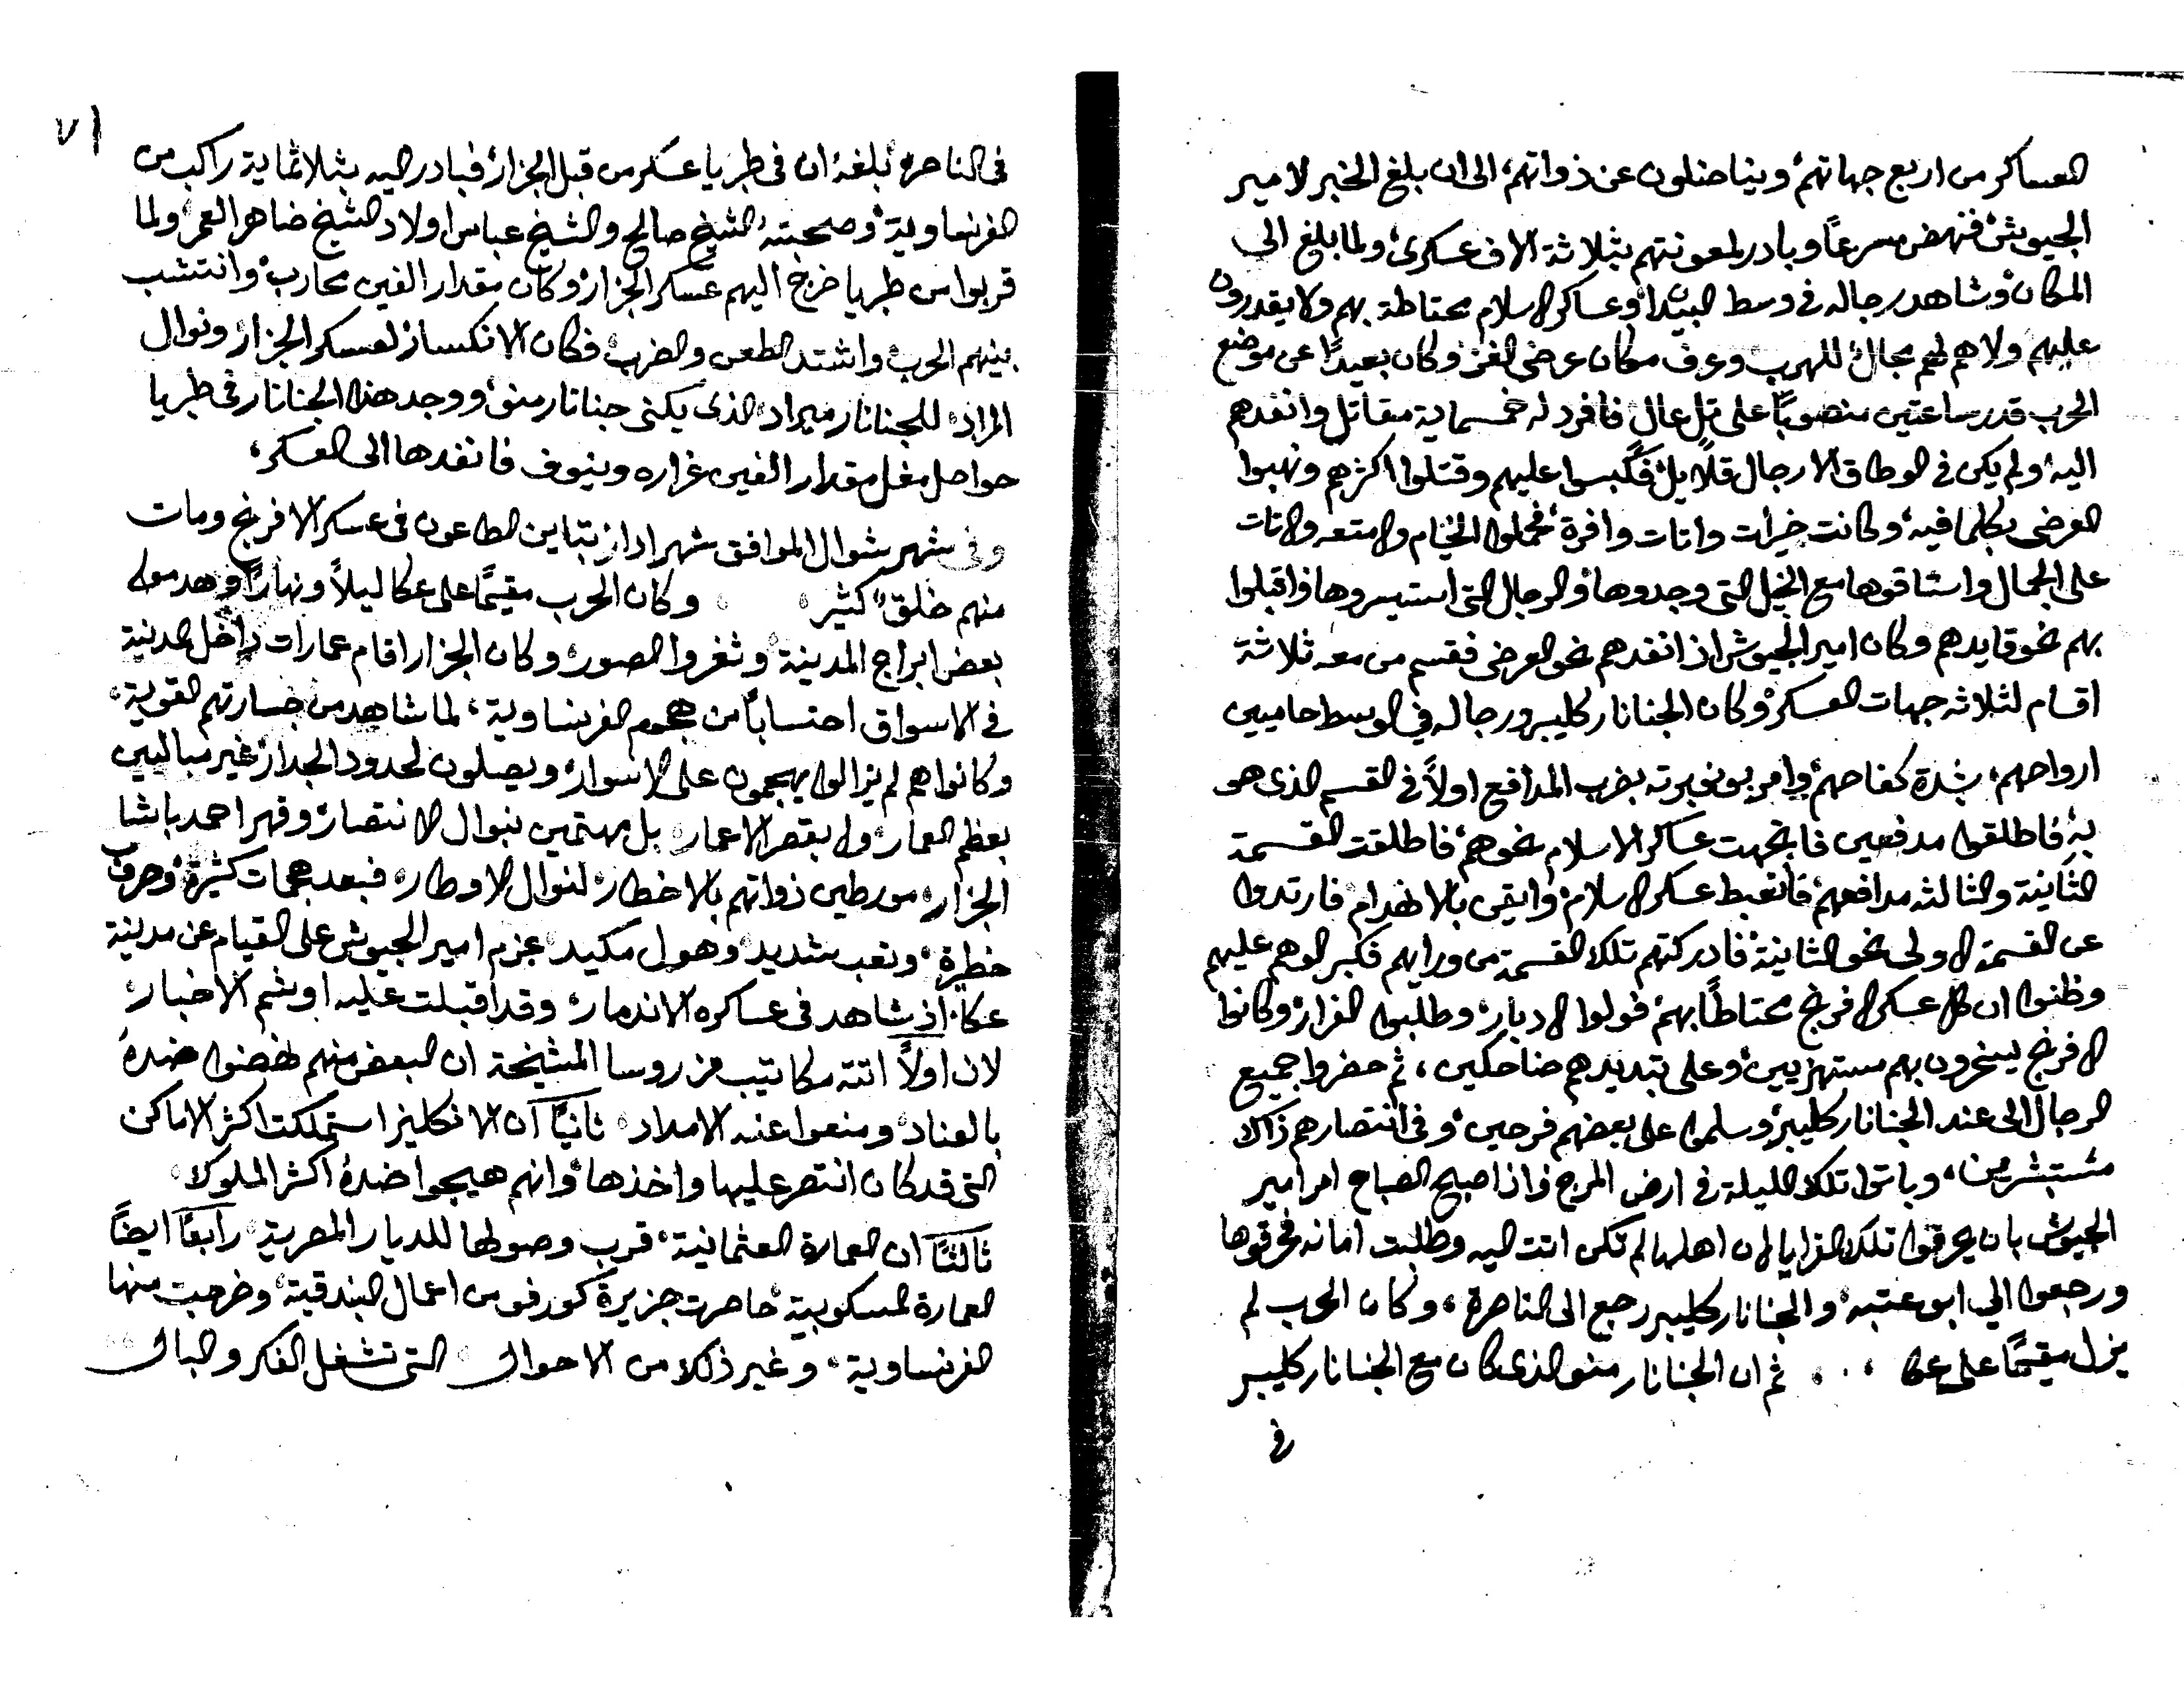 العساكر من اربع جهاتهم، ويناضلون عن ذواتهم، الى ان بلغ الخبر لامير
الجيوش، فنهض مسرعاً وبادر لمعونتهم بثلاثة الاف عسكرى، ولما بلغ الى
المكان، وشاهد رجاله فى وسط البيدا، وعساكر الاسلام محتاطة بهم ولا يقدرون
عليهم ولا هم لهم مجال للهرب وعرف مكان عرضى الغز، وكان بعيداً عن موضع
الحرب قدر ساعتين منصوباً على تل عال فافرد له خمسماية مقاتل وانفدهم
اليه، ولم يكن فى الوطاق الا رجال قلايل، فكبسوا عليهم وقتلوا اكثرهم ونهبوا
العرضى بكلما فيه، وكانت خيرات واتات وافرة، فحملوا الخيام والامتعه والاتات
على الجمال واستاقوها مع الخيل التى وجدوها، والرجال التى استيسروها، واقبلوا
بهم نحو قايدهم وكان امير الجيوش اذ انفدهم نحو العرضى فقسم من معه ثلاثة
اقسام لثلاثه جهات العسكر، وكان الجنانار كليبر ورجاله في الوسط حاميين
ارواحهم، بشدة كفاحهم، وامر بونوبرته بضرب المدافع اولاً فى القسم الذى هو
به، فاطلقوا مدفعين فاتجهت عساكر الاسلام نحوهم، فاطلقت القسمة
الثانية والثالثه مدافعهم، فانعبط عسكر الاسلام، وايقن بالانهدام، فارتدوا
عن القسمة الاولى نحو الثانية، فادركتهم تلك القسمة من ورايهم فكبر الوهم عليهم
وظنوا ان كل عسكر الافرنج محتاطاً بهم، فولوا الادبار، وطلبوا الفرار، وكانوا
الافرنج يسخرون بهم مستهزيين، وعلى تبديدهم ضاحكين، ثم حضروا جميع
الرجال الى عند الجنانار كليبر، وسلموا على بعضهم فرحين، وفى انتصارهم ذاك
مستبشرين، وباتوا تلك الليلة فى ارض المرج، واذا اصبح الصباح امر امير
الجيوش بان يحرقوا تلك القرايا لان اهلها لم تكن اتت اليه وطلبت امانه، فحرقوها
ورجعوا الي ابو عتبه، والجنانار كليبر رجع الى الناصرة، وكان الحرب لم
يزل مقيماً على عكا . . . ثم ان الجنانار منو الذى كان مع الجنانار كليبر
فى
٧١
فى الناصرة، بلغه ان فى طبريا عسكر من قبل الجزار، فبادر اليه بثلاثماية راكب من
الفرنساوية، وصحبته الشيخ صالح والشيخ عباس اولاد الشيخ ضاهر العمر، ولما
قربوا من طبريا خرج اليهم عسكر الجزار، وكان مقدار الفين محارب، وانتشب
بينهم الحرب، واشتد الطعن والضرب، فكان الانكسار لعسكر الجزار، ونوال
المراد، للجنانار ميراد، الذى يكنى جنانار منو، ووجد هذا الجنانار فى طبريا
حواصل مغل مقدار الفين غراره وينوف فانفدها الى العسكر،
وفى شهر شوال الموافق شهر ادار تباين الطاعون فى عسكر الافرنج ومات
منهم خلقٌ كثير، وكان الحرب مقيماً على عكا ليلاً ونهاراً، وهدموا
بعض ابراج المدينة، وثغروا الصور، وكان الجزار اقام عمارات داخل المدينة
فى الاسواق احتساباً من هجوم الفرنساوية، لما شاهد من جسارتهم القوية،
وكانوا هم لم يزالوا يهجمون على الاسوار، ويصلون لحدود الجدار، غير مباليين
بعظم العمار، ولا بقصر الاعمار، بل مهتمين بنوال الانتصار، وقهر احمد باشا
الجزار، مورطين ذواتهم بالاخطار، لنوال الاوطار، فبعد هجمات كثيرة، وحروب
خطرة، وتعب شديد، وهول مكيد، عزم امير الجيوش على القيام عن مدينة
عكا، اذ شاهد فى عساكره الاندمار، وقد اقبلت عليه اوشم الاخبار،
لان اولاً اتته مكاتيب من روسا المشيخة ان البعض منهم نهضوا ضده
بالعناد، ومنعوا عنه الامداد، ثانياً ان الانكليز استملكت اكثر الاماكن
التى قد كان انتصر عليها واخذها، وانهم هيجوا ضده اكثر الملوك،
ثالثاً ان العمارة العثمانية، قرب وصولها للديار المصرية، رابعاً ايضاً
العمارة المسكوبية، حاصرت جزيرة كورفو من اعمال البندقية، وخرجت منها
الفرنساوية، وغير ذلك من الاحوال، التى تشغل الفكر والبال،